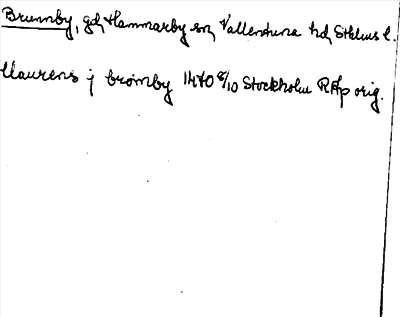 Brunnby, gd, Hammarby sn, Vallentuna hd, Sthlms l.
Laurens j brømby 1470 8/10 Stockholm RAp orig.